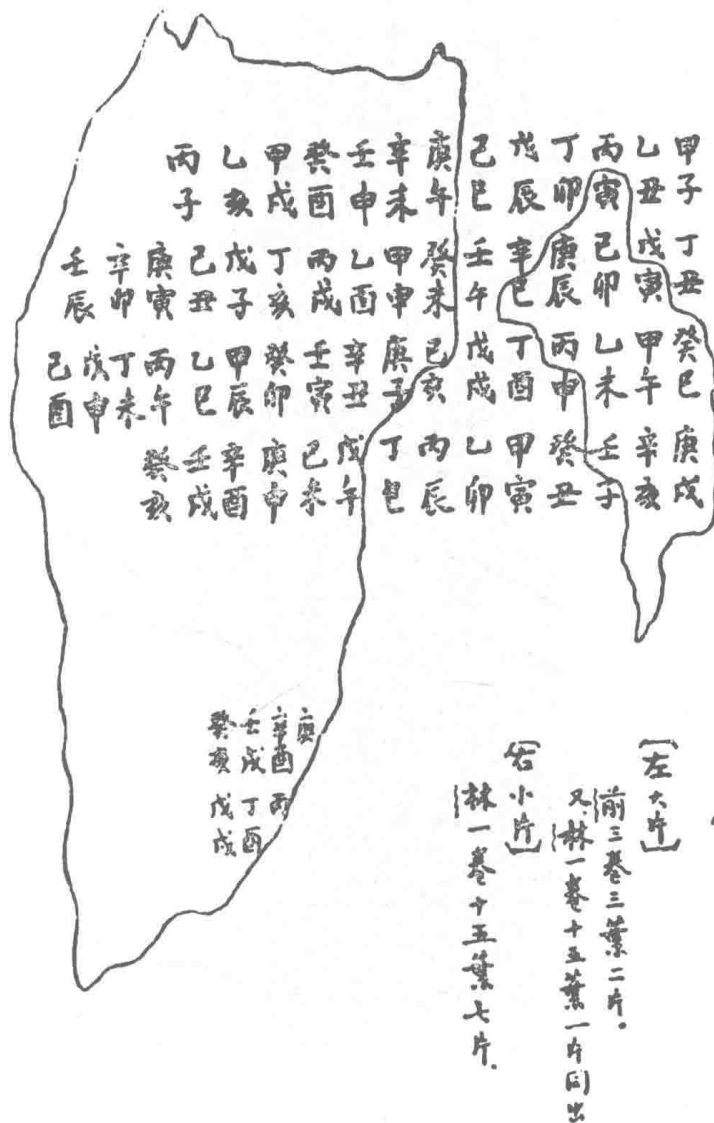 甲子 乙丑 丙寅 丁卯 戊辰 己巳 庚午 辛未 壬申 癸酉 甲戌 乙亥 丙子
丁丑 戊寅 己卯 庚辰 辛巳 壬午 癸未 甲申 乙酉 丙戌 丁亥 戊子 己丑 庚寅 辛卯 壬辰
癸巳 甲午 乙未 丙申 丁酉 戊戌 己亥 庚子 辛丑 壬寅 癸卯 甲辰 乙巳 丙午 丁未 戊申 己酉
庚戌 辛亥 壬子 癸丑 甲寅 乙卯 丙辰 丁巳 戊午 己未 庚申 辛酉 壬戌 癸亥
庚 辛酉 壬戌 癸亥
丙 丁酉 戊戌
〔左大片〕
前三卷三葉二片。
又林一卷十五葉一片同出
〔右小片〕
林一卷十五葉七片.